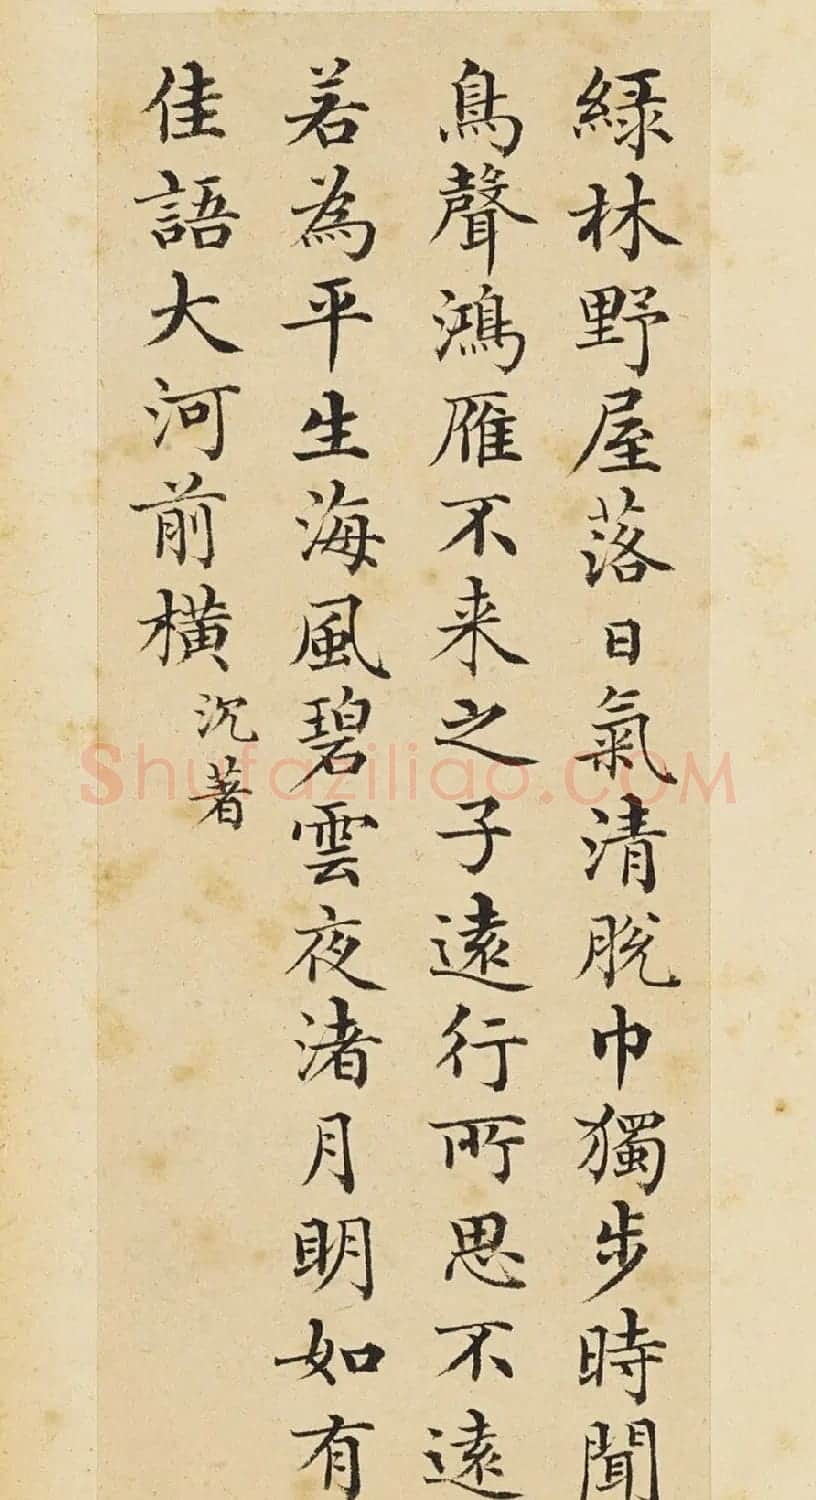 緑林野屋落日氣清脱巾獨步時聞
鳥聲鴻雁不来之子遠行所思不遠
若為平生海風碧雲夜渚月明如有
佳語大河前横
沉著
Shufaziliao.COM